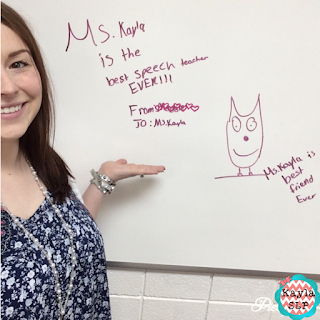 Ms. Kayla
is the
best speech teacher
EVER!!!
From
TO: Ms.Kayla
Ms.Kayla is
best
friend
Ever
Kayla
SLP